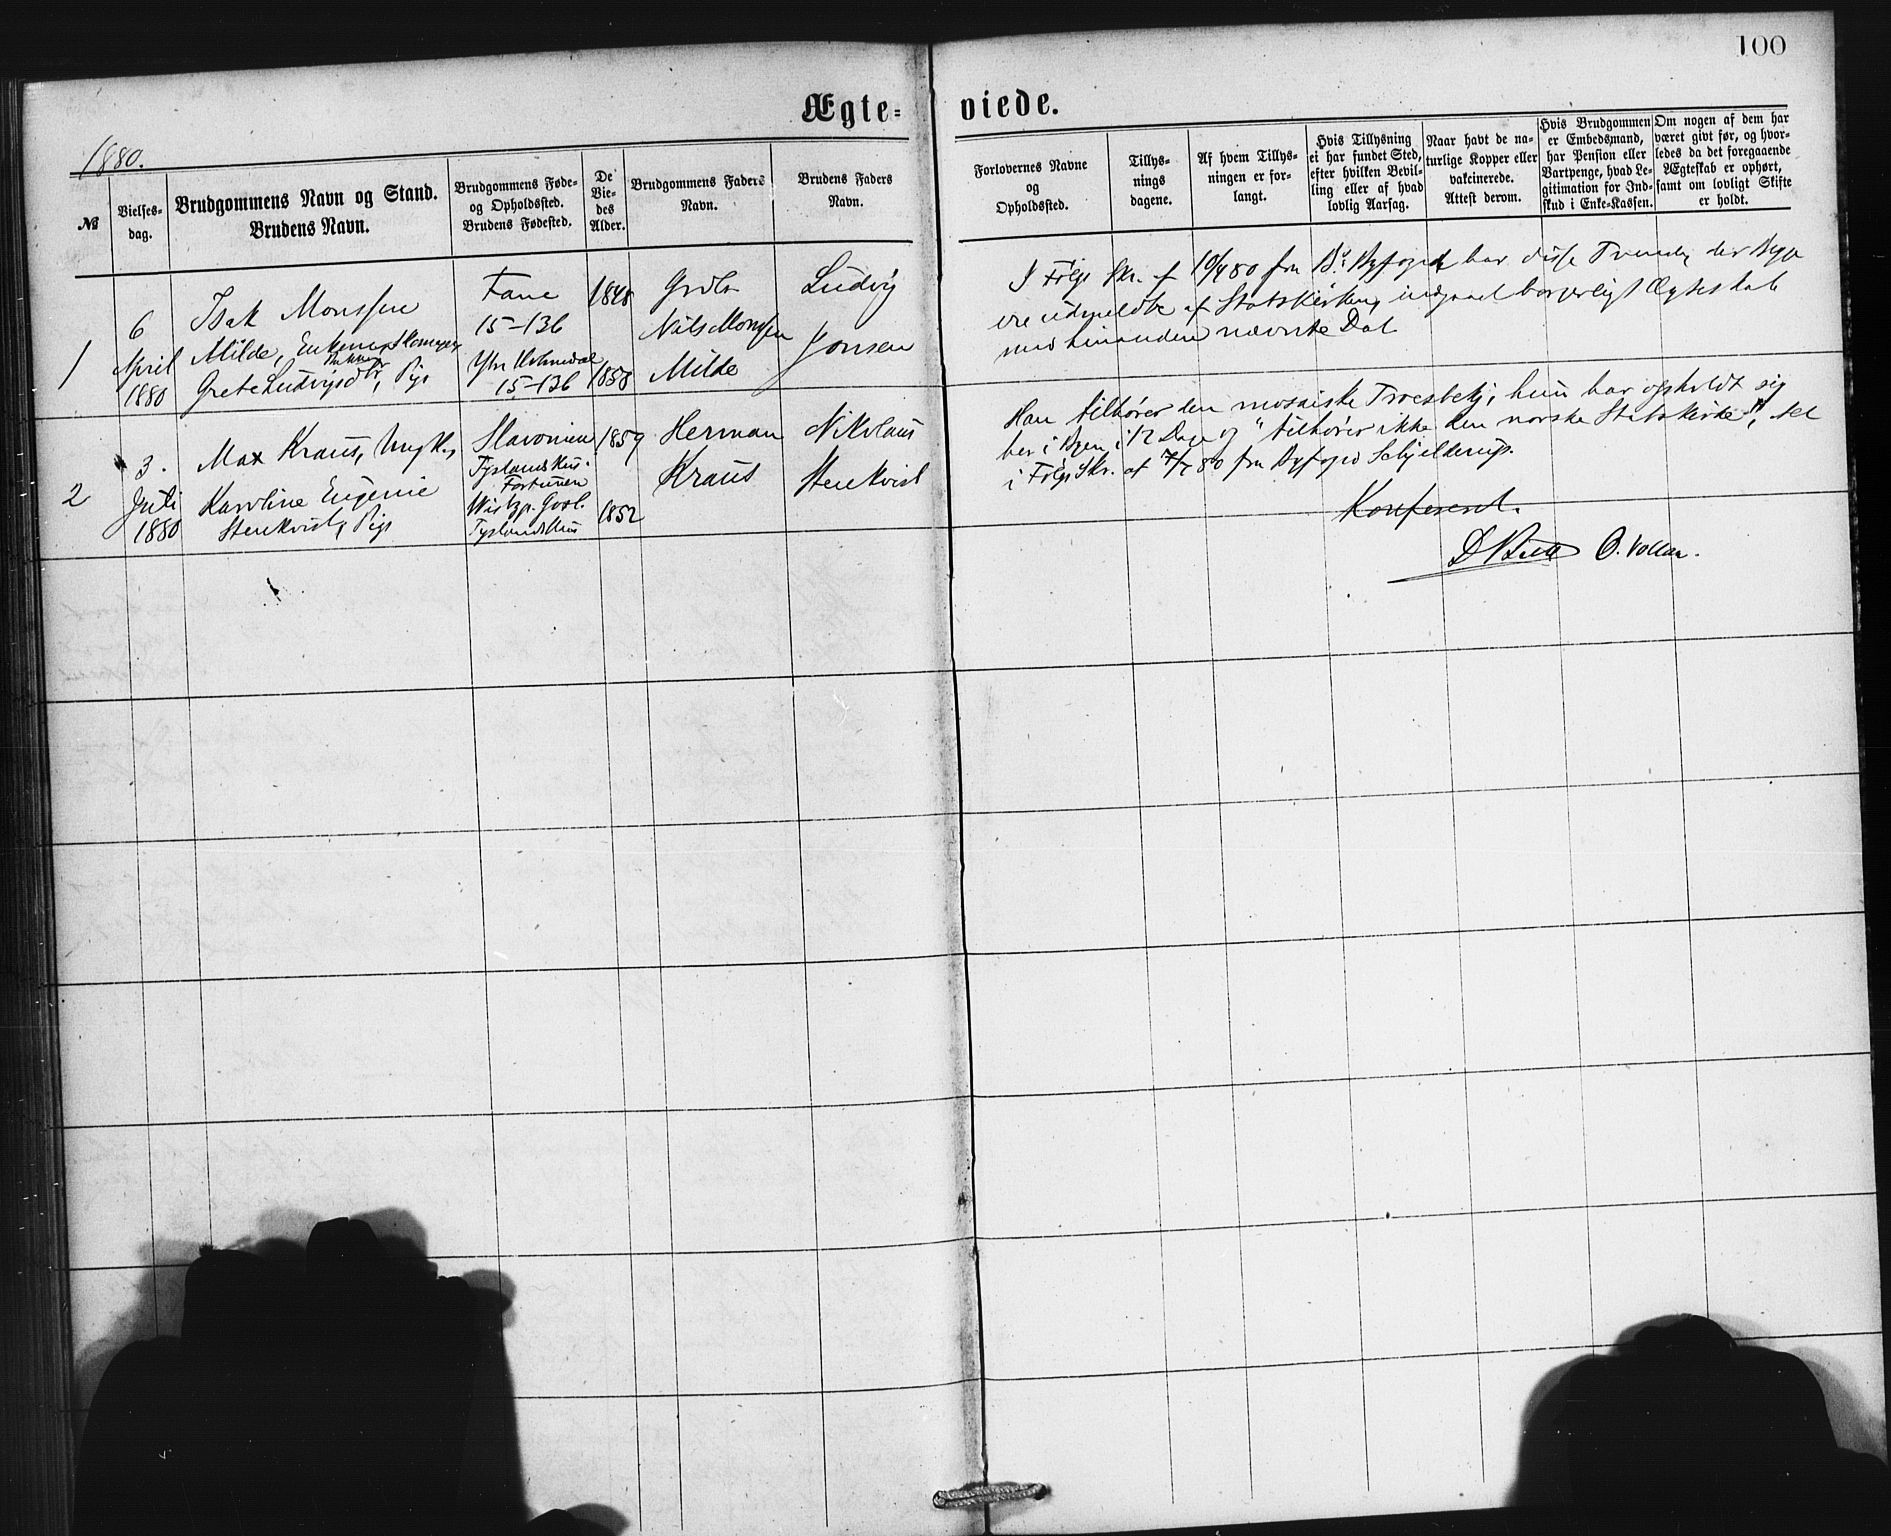 100
Ægte=
viede.
1880.
№
Vielses-
dag.
Brudgommens Navn og Stand.
Brudens Navn.
Brudgommens Føde-
og Opholdssted.
Brudens Fødested.
De
Vie-
des
Alder.
Brudgommens Faders
Navn.
Brudens Faders
Navn.
Forlovernes Navne
og
Opholdssted.
Tillys-
nings
dagene.
Af hvem Tillys-
ningen er for-
langt.
Hvis Tillysning
ei har fundet Sted,
efter hvilken Bevil-
ling eller af hvad
lovlig Aarsag.
Naar havt de na-
turlige Kopper eller
vakcinerede.
Attest derom.
Hvis Brudgommen
er Embedsmand,
har Pension eller
Vartpenge, hvad Le-
gitimation for Ind-
skud i Enke-Kassen.
Om nogen af dem har
været givt før, og hvor-
ledes da det foregaaende
Ægteskab er ophørt,
samt om lovligt Skifte
er holdt.
1
6
April
1880
Isak Monssen
Milde, Enkem
Grete Ludvigsdtr, Pige
Fane
15-136
Ytre Holmedal
15-136
1848
1858
Grdbr
Nils Monsen
Milde
Ludvig
Jonsen
I Følge Skr. af 10/4 80 fra Bs Byfoged har disse Tvende, der begge
ere udmeldte af Statskirken, indgaaet borgerligt Ægteskab
med hinanden nævnte Dat
2
3.
Juli
1880
Max Kraus, Ungk.,
Karoline Eugenie
Stenkvist, Pige
Slavonien
Tyslands Hus.
Fortunen
Tyslands Hus
1859
1852
Herman
Kraus
Nikolaus
Stenkvist
Han tilhører den mosaiske Troesbekj, hun har opholdt sig
her i Byen i 12 Dage og "tilhører ikke den norske Statskirke",
i Følge Skr. af 7/7 80 fra Byfoged Schjelderup.
Konfereret.
O. Vollan.